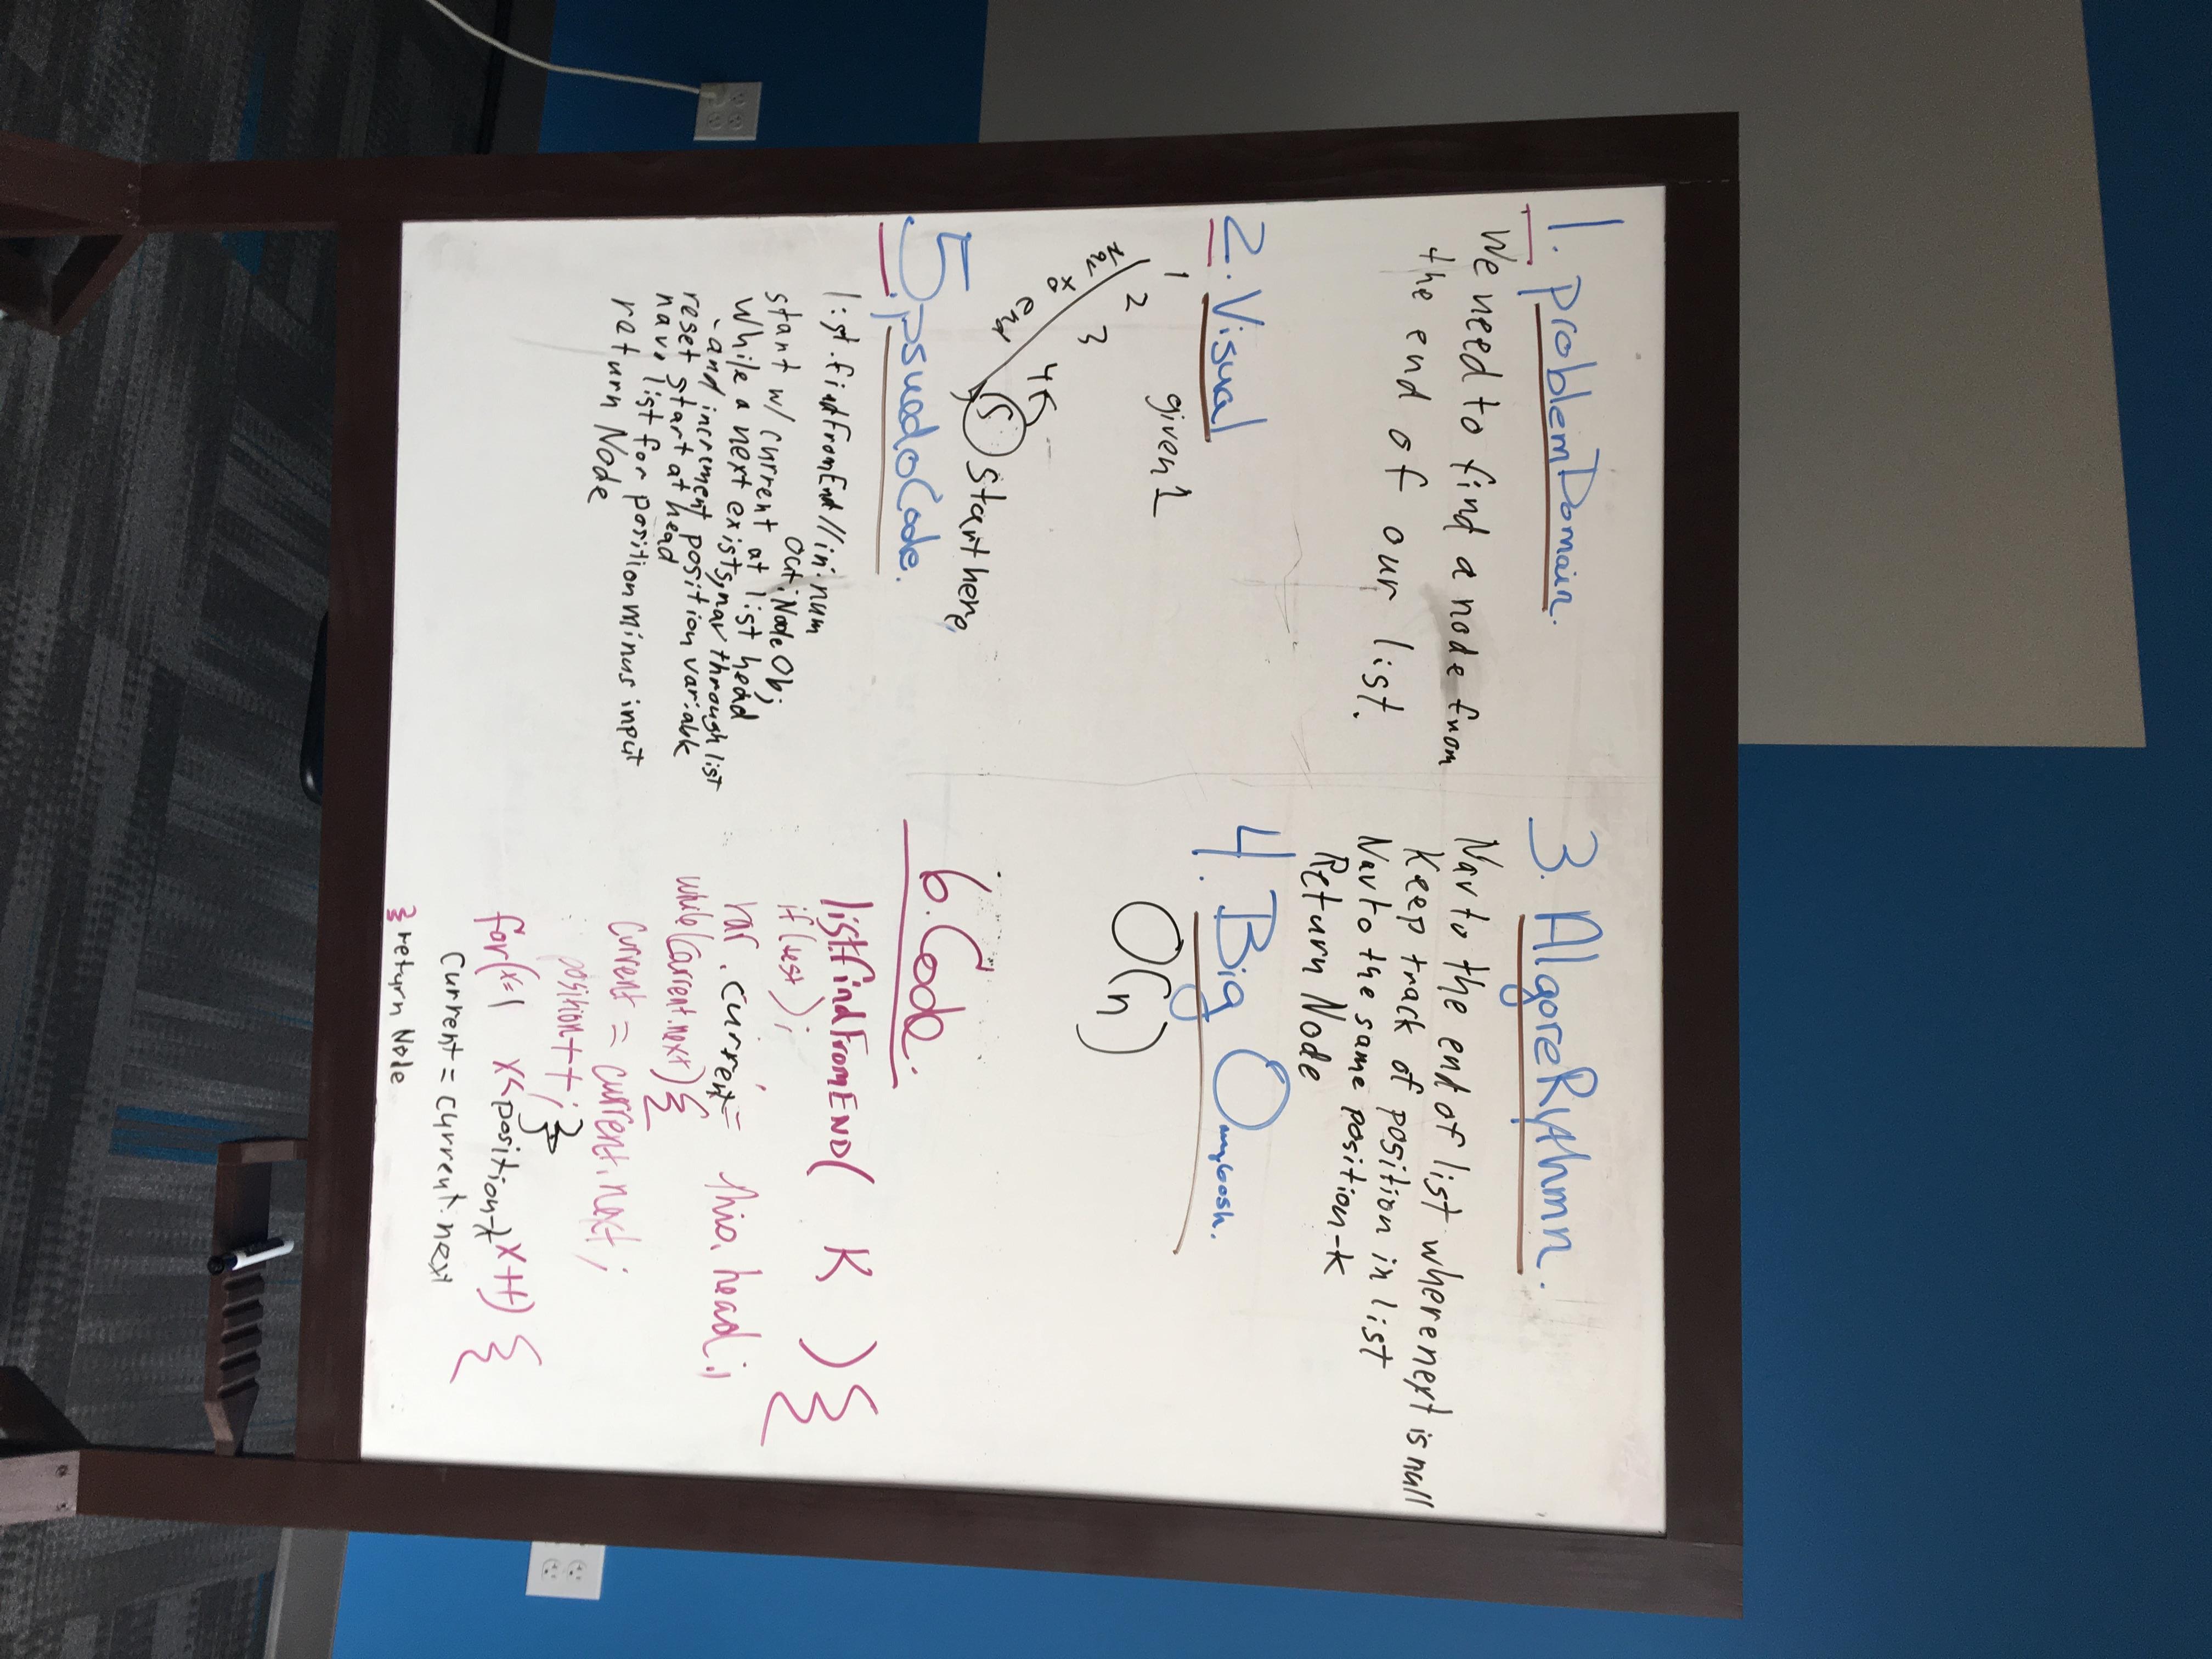 1. problem Domain.
We need to find a node from
the end of our list.
2. Visual
given 2
1 2 3 4
5 Start here
end
5. psuedoCode.
list.findFromEnd // in: num
out: Node Obj
start w/ current at list head
while a next exists, nav through list
- and increment position variable
reset start at head
nav list for position minus input
return Node
3. AlgoreRythmn.
Nav to the end of list where next is null
Keep track of position in list
Nav to the same position - k
Return Node
4. Big Ommygoosh.
O(n)
6. Code.
listfindFromEND( K ) {
if( );
var. current = this.head;
while(current.next) {
current = current.next;
position++; }
for(x=1 x<position-k x++) {
current = current.next
} return Node